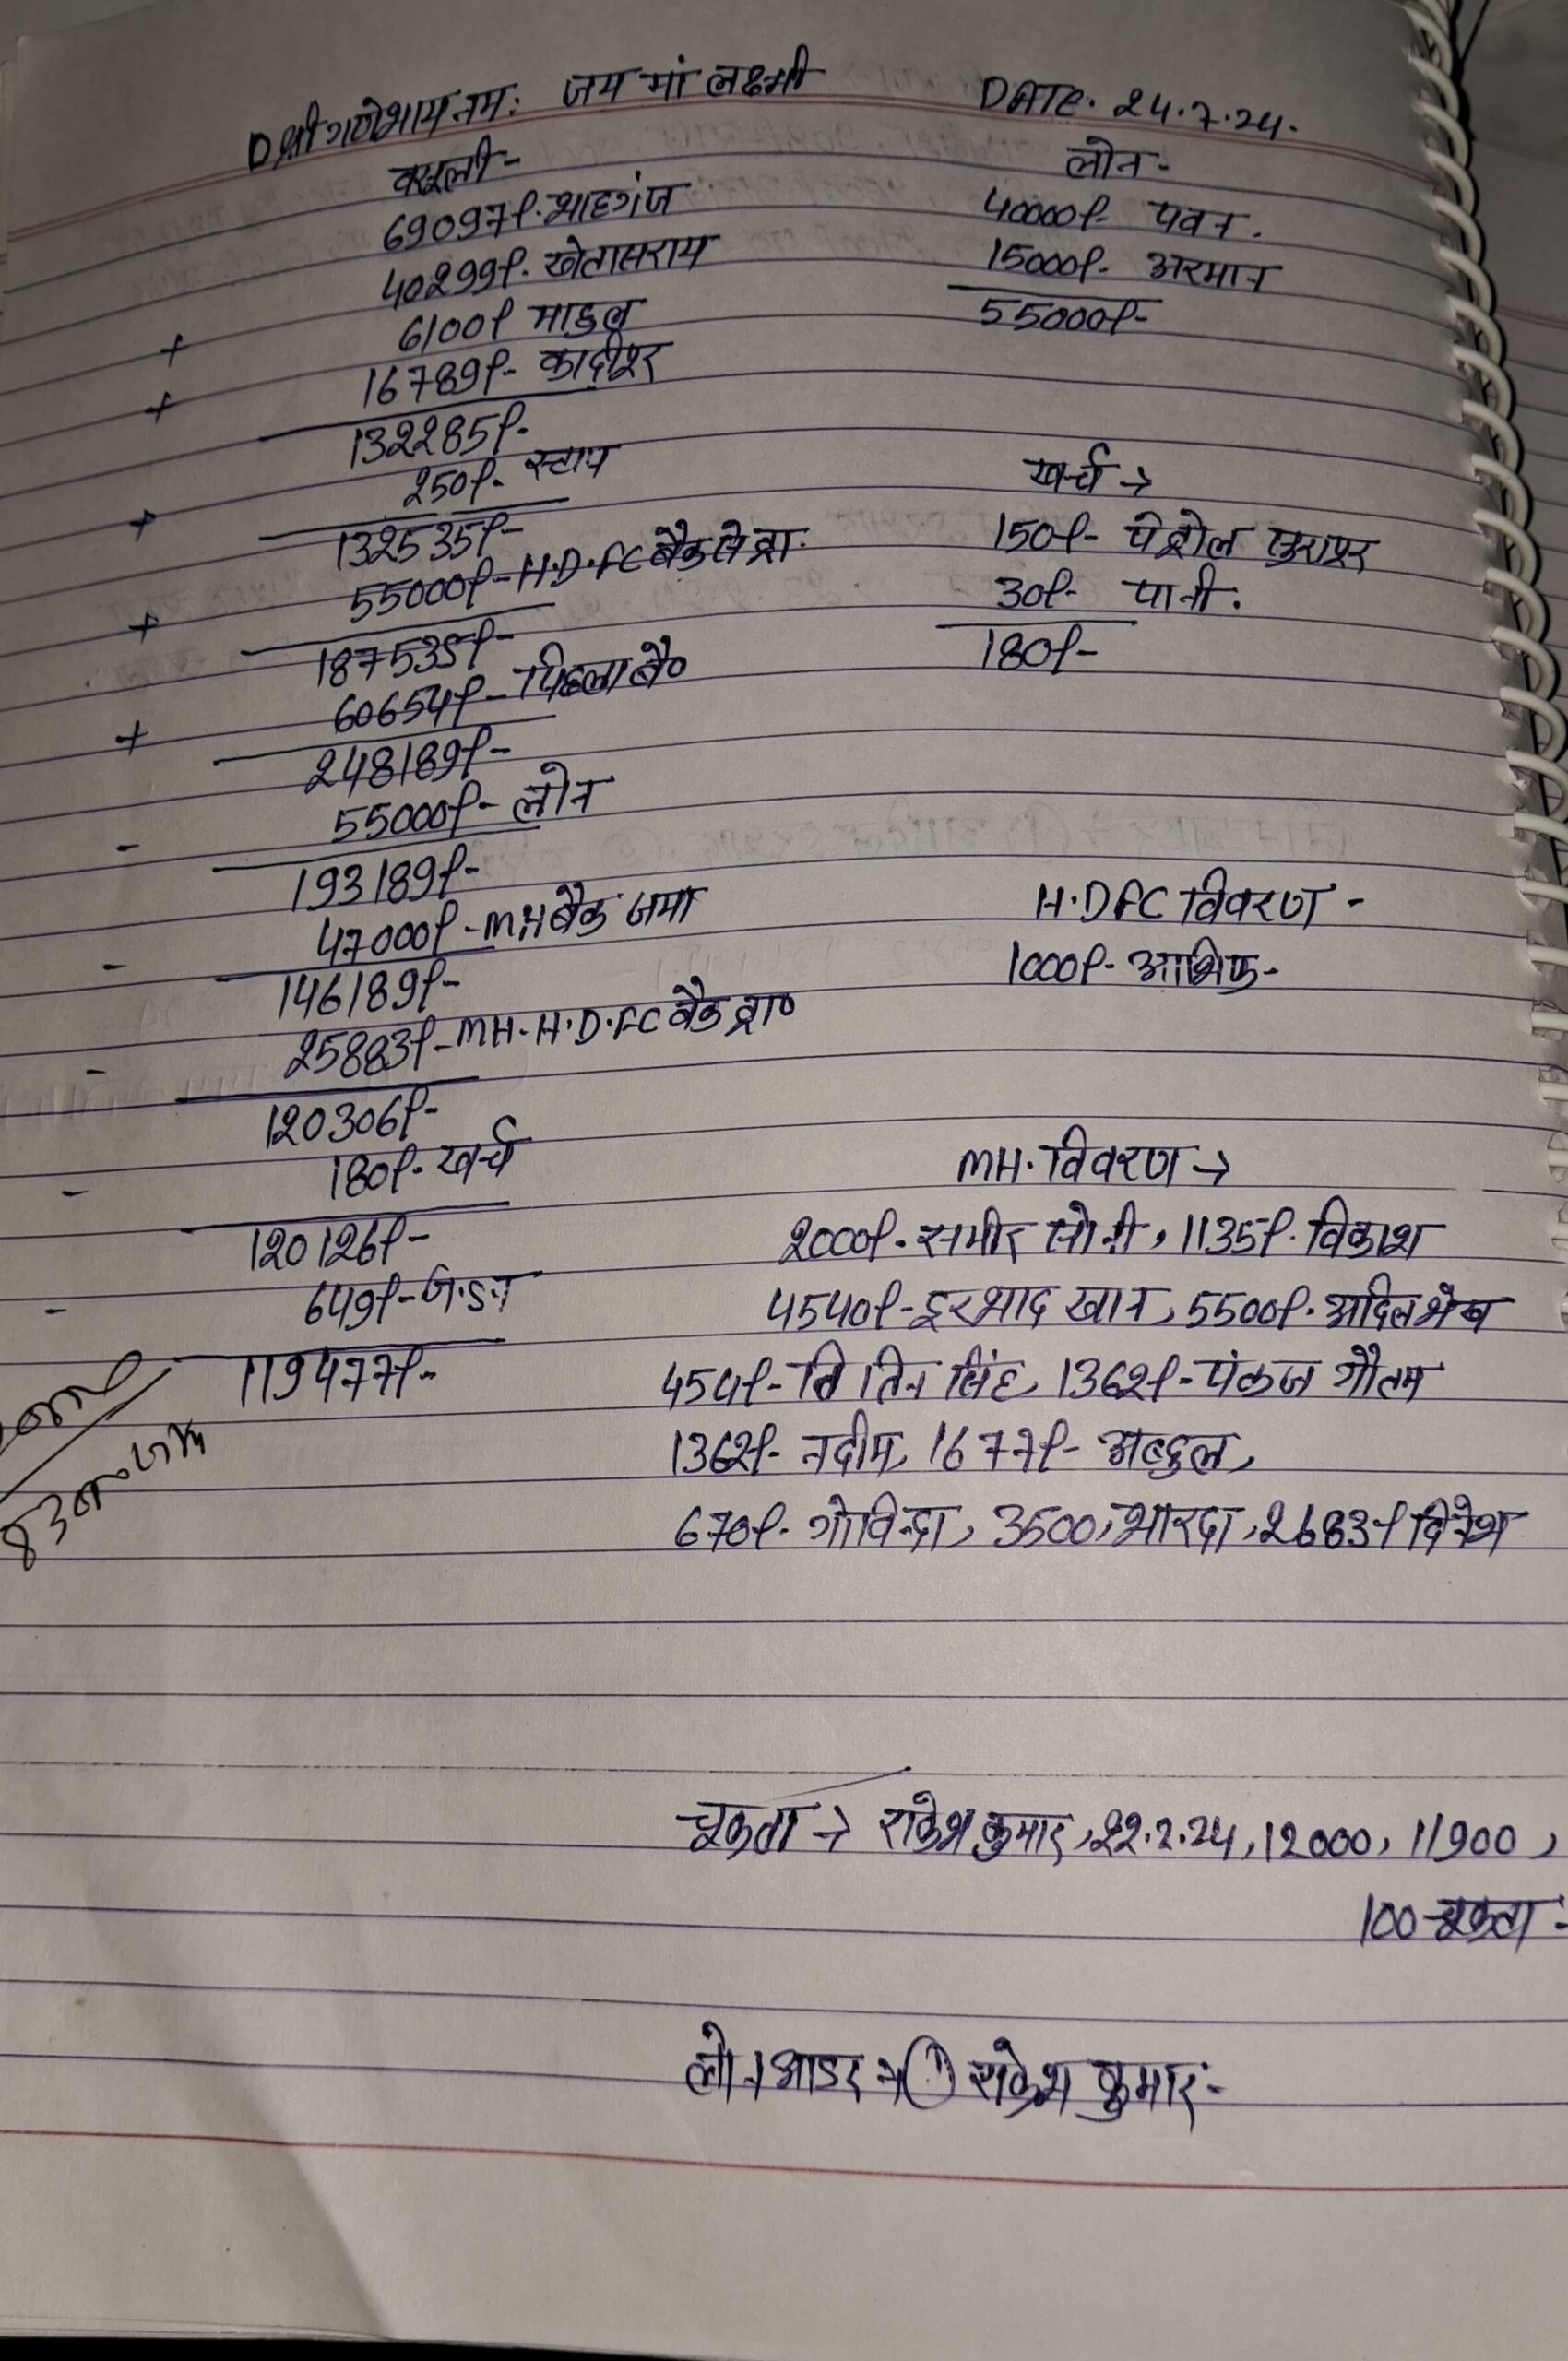 श्री गणेशाय नमः जय मां लक्ष्मी DATE. 24.7.24.
वसूली-
69097/- शाहगंज
40299/- खेतासराय
+ 6100/- माडल
+ 16789/- कादीपुर
132285/-
+ 250/- स्टाप
132535/-
+ 55000/- H.D.FC बैंक से प्रा.
187535/-
+ 60654/- पिछला बै०
248189/-
- 55000/- लोन
193189/-
- 47000/- MH बैंक जमा
146189/-
- 25883/- MH-H.D.FC बैंक प्रा०
120306/-
- 180/- खर्च
120126/-
- 649/-
119477/-
लोन-
40000/- पवन.
15000/- अरमान
55000/-
खर्च →
150/- पेट्रोल
30/- पानी.
180/-
H.DFC विवरण -
1000/- आशिफ-
MH. विवरण →
2000/- समीर सोनी, 1135/- विकाश
4540/- इरशाद खान, 5500/- आदिल शेख
454/- सिंह, 1362/- पंकज गौतम
1362/- नदीम, 1677/- अब्दुल,
670/- गोविन्दा, 3500, शारदा, 2683/- दिनेश
चूकता → राकेश कुमार, 22.2.24, 12000, 11900,
100 चूकता -
लोन आडर → ① राकेश कुमार -